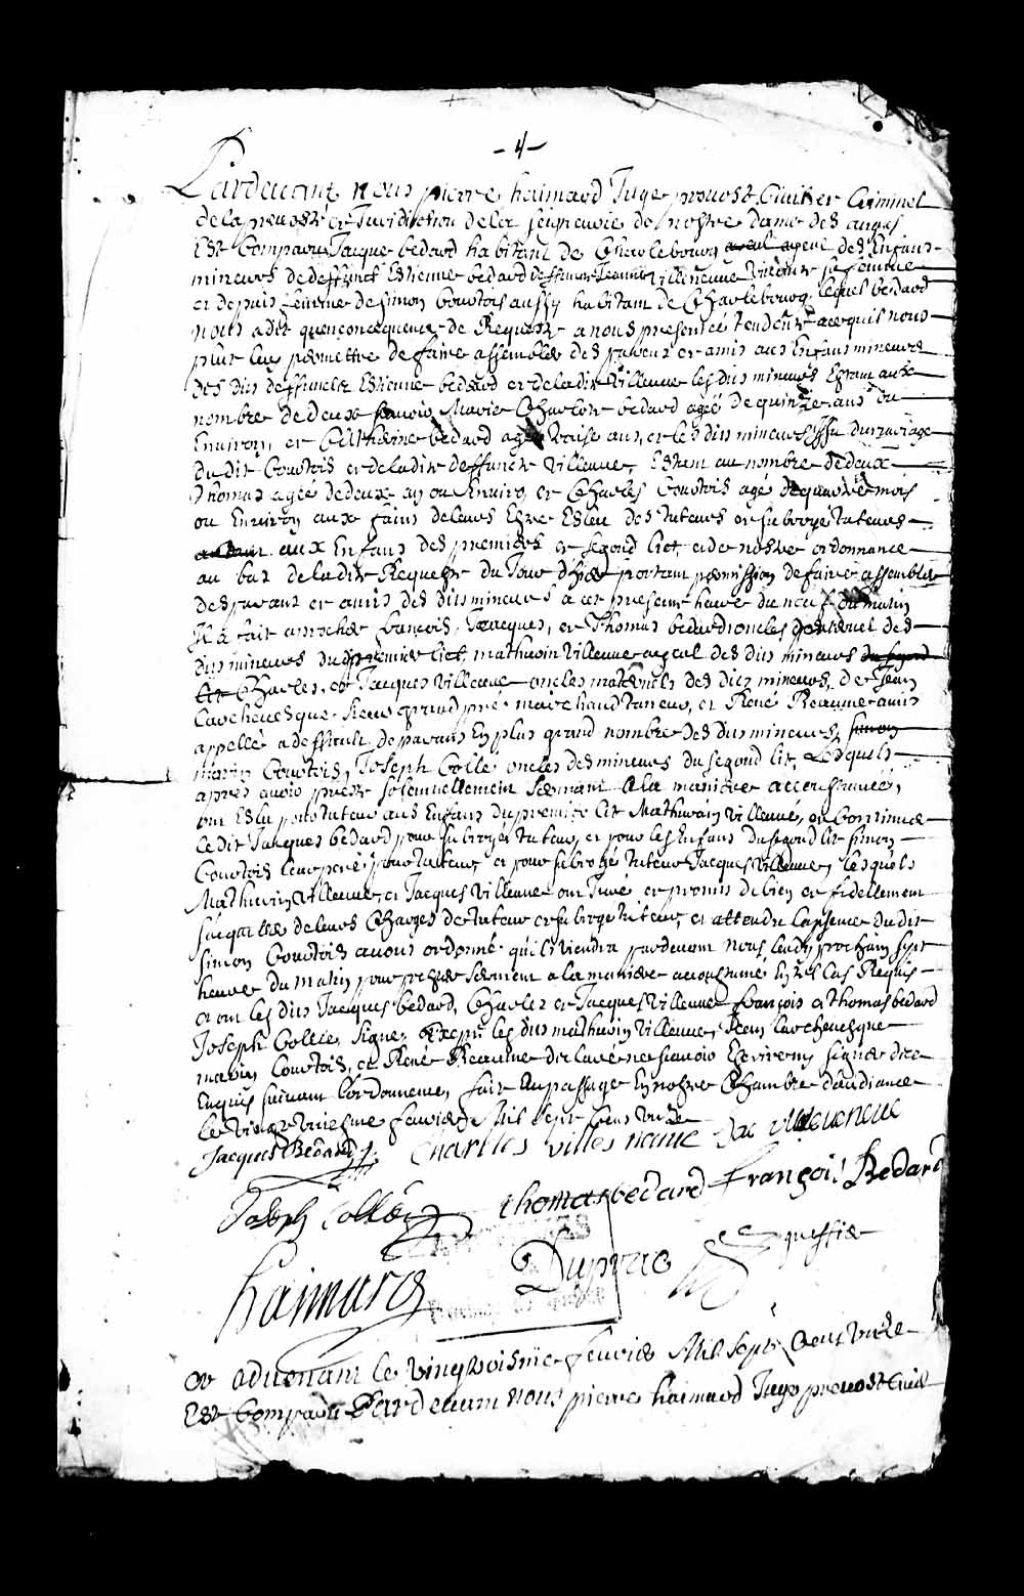 -4-
Pardevant nous pierre haimard Juge prevost Civil et Criminel
de la prevosté et Juridiction de la seigneurie de nostre dame des anges
Est Comparu Jacque bedard habitant de Charlebourg des Enfans
mineurs de deffunct Estienne bedard deffuncte Jeanne villeneuve sa femme
et depuis femme de simon Courtois aussy habitant de Charlebourg lequel bedard
nous a dit quen consequence de Requeste a nous presentée tendente a ce quil nous
plut luy permettre de faire assembler des parens et amis aus Enfans mineurs
des dits deffuncts Estienne bedard et de la dite villeneuve les dits mineurs Estant au
nombre de deux scavoir Marie Charlote bedard ageé de quinze ans ou
Environ et Catherine bedard ageé traise ans, et les dits mineurs issu du mariage
du dit Courtois et de la dite deffuncte villeneuve, Estant au nombre de deux
Thomas ageé de deux an ou Environ et Charles Courtois agé de quatre mois
ou Environ aux fains de leurs Estre Esleu des tuteurs et subroge tuteurs
aux Enfans des premiers et segond liet, et de nostre ordonnance
au bas de la dite Requeste du Jour dhier portant permission de faire assembler
des parans et amis des dits mineurs a cet presente heure du neuf du matin
Il a fait aprocher francois, Jacques, et Thomas bedard oncles paternel des
dits mineurs du premier liet, mathurin villeneuve ayeul des dits mineurs du segond
liet Charles, et Jacques villeneuve oncles maternels des dits mineurs, de Jean
Larcheuesque sieur grandpré marchand taneur, et René Reaume amis
appellé a deffault de parans En plus grand nombre des dits mineurs, simon
marin Courtois, Joseph Collé oncles des mineurs du segond lit, Lesquels
apres avoir presté solemnellement serment a la maniere accoustumeé,
ont Eslu pour tuteur aus Enfans du premier lit Mathurin villeneuve, et Continué
le dit Jacques bedard pour subroyer tuteur, et pour les Enfans du segond lit simon
Courtois leur pere pour tuteur et pour subrogé tuteur Jacques villeneuve, lesquels
Mathurin villeneuve, et Jacques villeneuve ont Juré et promis de bien et fidellement
saquitter de leurs Charges de tuteur et subroge tuteur, et attendu labsence du dit
simon Courtois avons ordonné qu'il viendra pardevant nous lundy prochain sept
heures du matin pour prester serment a la maniere accoustumé
et ont les dits Jacques bedard, Charles et Jacques villeneuve francois et thomas bedard
Joseph Collée signé, Excepté les dits mathurin villeneuve, Jean Larcheuesque
marin Courtois, et René Reaume declaré ne scavoir Escrire ny signer de ce
Enquis suivant lordonnance, fait En passage En nostre Chambre daudiance
le vingt uniesme feurier Mil sept Cens unze
Jacques Bedard Charlles villes naiue Jac villeueneuue
Joseph Collée thomas bedard françois Bedard
haimard Duprac greffier
et aduenant le vingtroisiesme feurier Mil sept Cens unze
Est Comparu Pardevant nous pierre haimard Juge prevost Civil